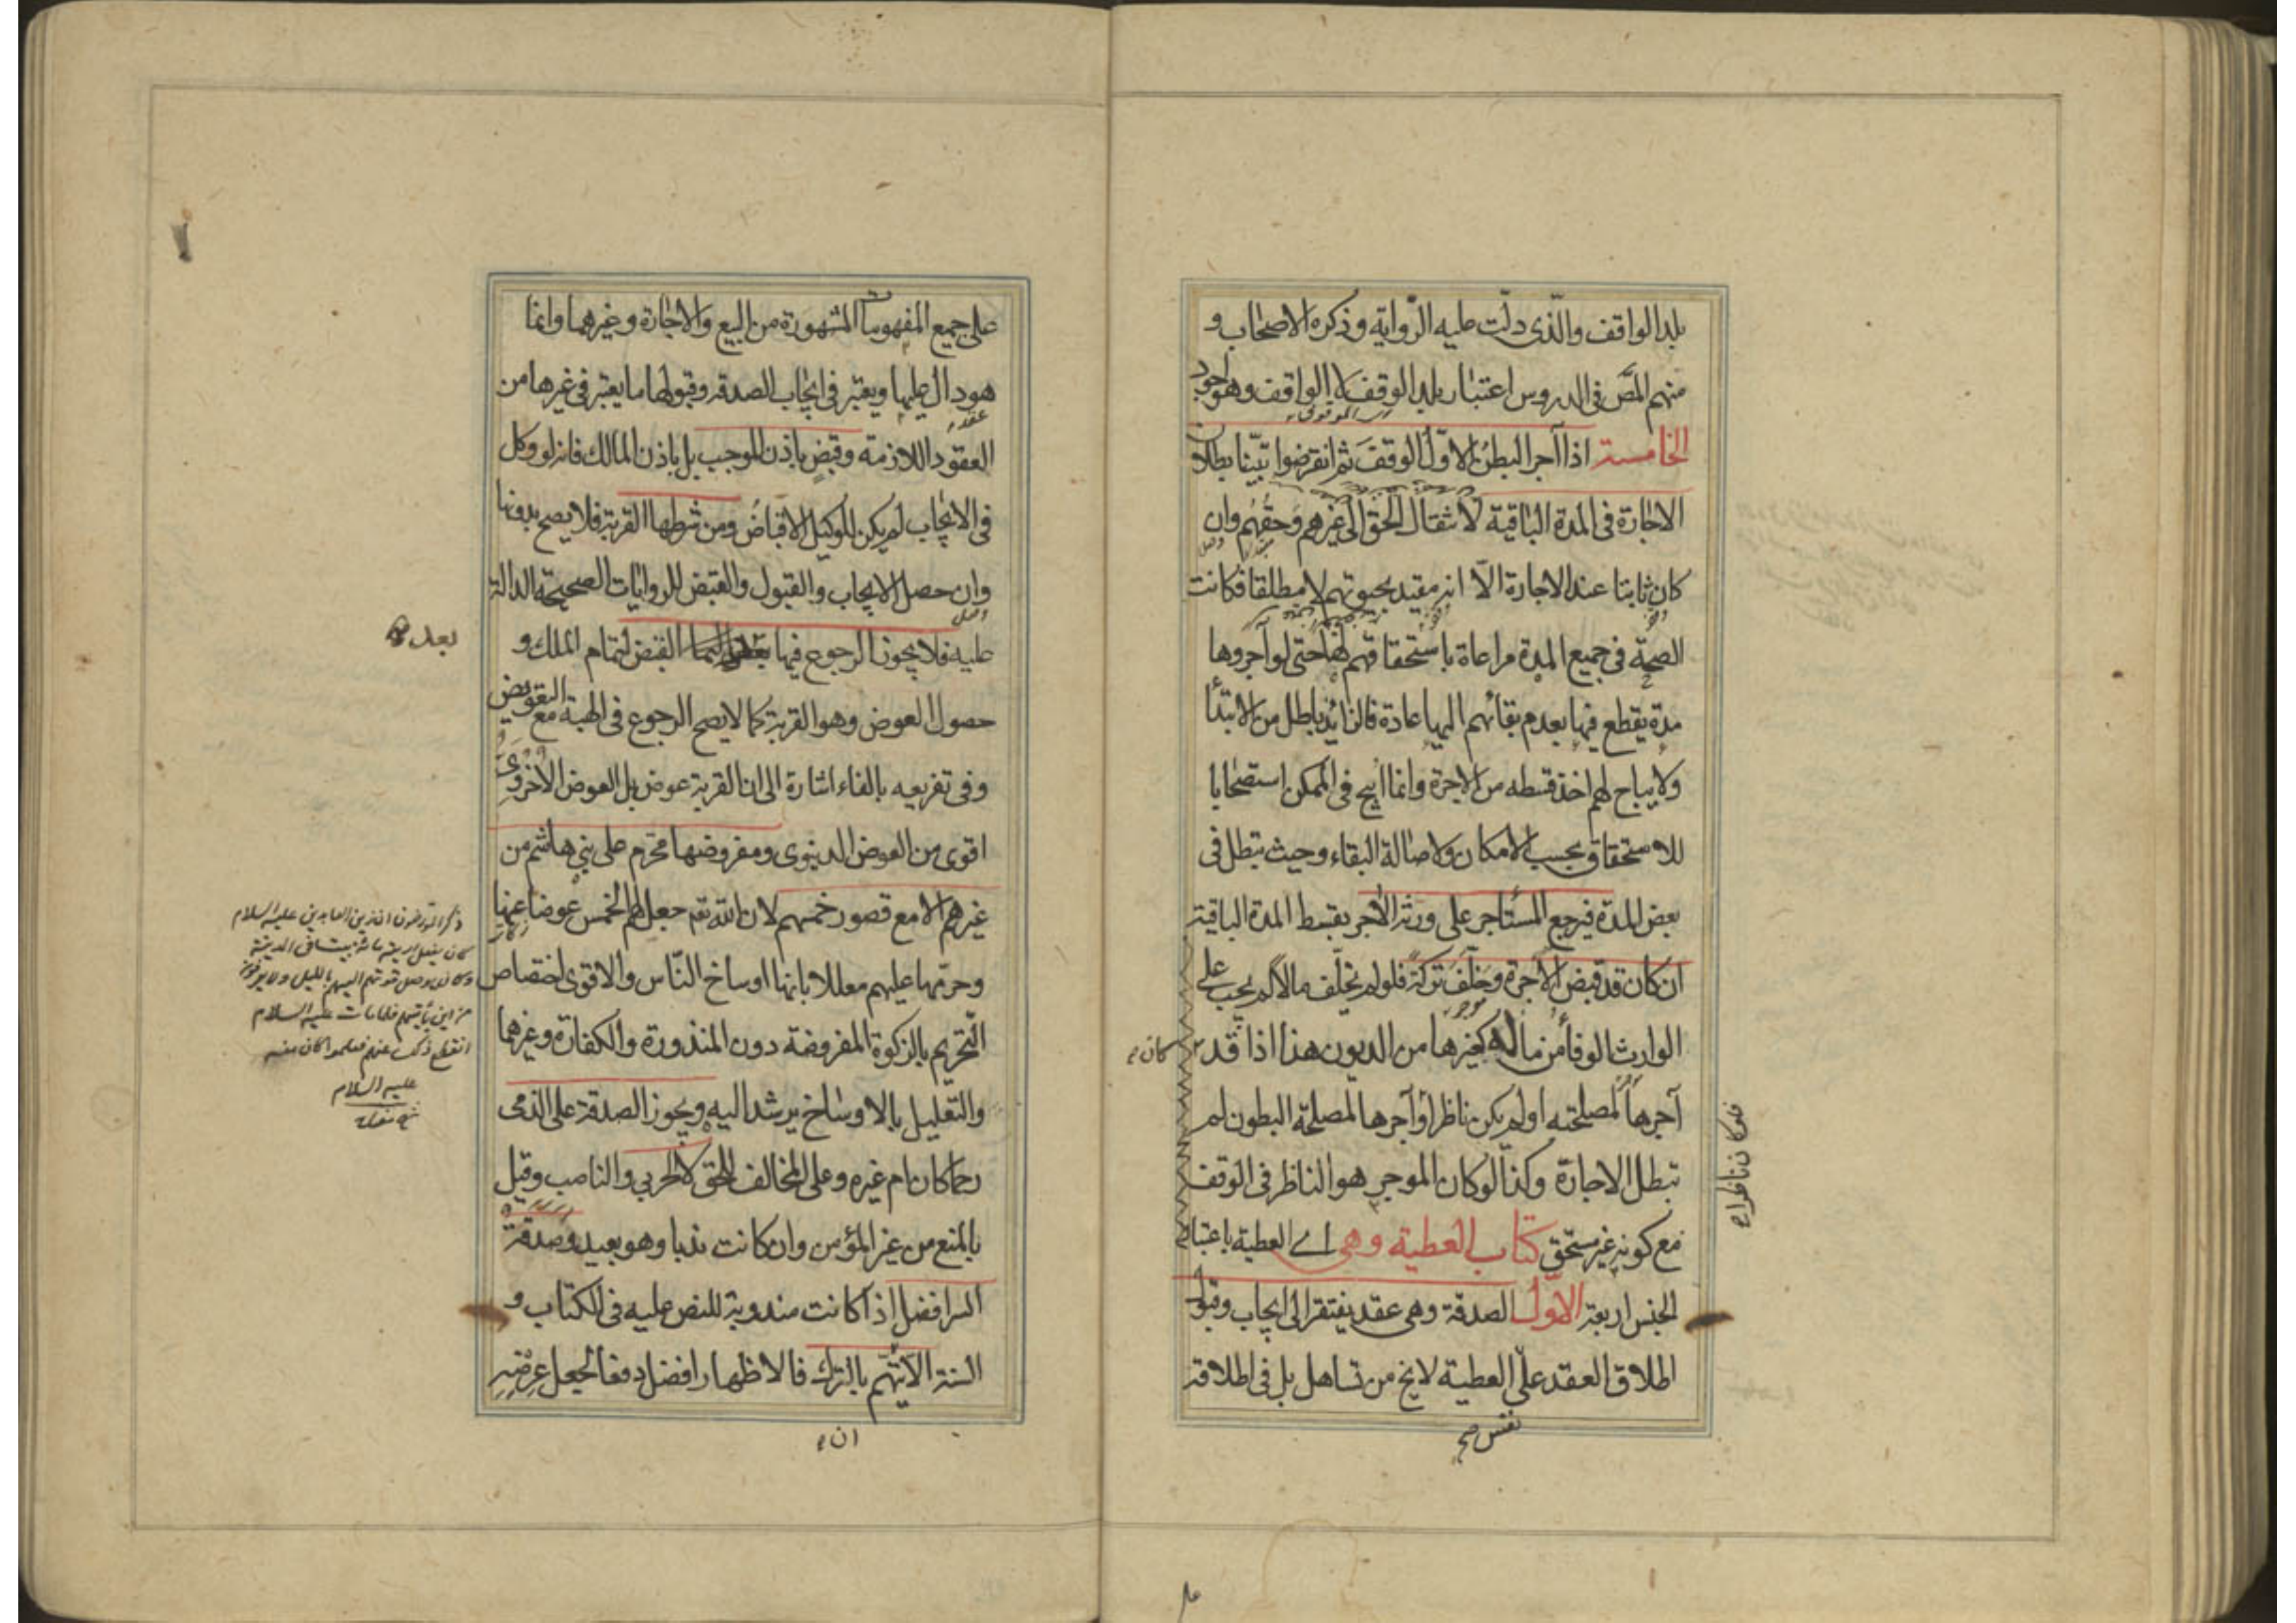 بلد الواقف والّذى دلّت عليه الرّواية وذكره الاصحاب و
منهم المصّ فى الدروس اعتبار بلد الوقف لا الواقف وهو اجود
الخامسة اذا آجر البطن الاوّل الوقف ثم انقرضوا تبيّنا بطلان
الاجارة فى المدة الباقية لانتقال الحق الى غيرهم وحقهم وان
كان ثابتا عند الاجارة الّا انه مقيد بحيوتهم لا مطلقا فكانت
الصحة فى جميع المدة مراعاة باستحقاقهم لها حتى لو آجروها
مدة يقطع فيها بعدم بقائهم اليها عادة فالزائد باطل من الابتدأ
ولا يباح لهم اخذ قسطه من الاجرة وانما ابيح فى الممكن استصحابا
للاستحقاق بحسب الامكان ولاصالة البقاء وحيث تبطل فى
بعض المدة فيرجع المستاجر على ورثة الآجر بقسط المدة الباقية
ان كان قد قبض الاجرة وخلّف تركة فلو لم يخلّف مالا لم يجب على
الوارث الوفأ من ماله كغيرها من الديون هذا اذا قد
كان
آجرها لمصلحته او لم يكن ناظرا وآجرها لمصلحة البطون لم
فلو كان ناظرا
تبطل الاجارة وكذا لو كان الموجر هو الناظر فى الوقف
مع كونه غير مستحق كتاب العطية وهى اے العطية باعتبار
الجنس اربعة الاوّل الصدقة وهى عقد يفتقر الى ايجاب وقبول
اطلاق العقد على العطية لا يخ من تساهل بل فى اطلاقه
نفس صح
على جميع المفهومات المشهورة من البيع والاجارة وغيرهما وانما
هو دال عليها ويعتبر فى ايجاب الصدقة وقبولها ما يعتبر فى غيرها من
العقود اللازمة وقبض باذن الموجب بل باذن المالك فانه لو وكل
فى الايجاب لم يكن للوكيل الاقباض ومن شرطها القربة فلا يصح بدونها
وان حصل الايجاب والقبول والقبض للروايات الصحيحة الدالة
عليه فلا يجوز الرجوع فيها القبض لتمام الملك و
بعد
حصول العوض وهو القربة كما لا يصح الرجوع فى الهبة مع التعويض
وفى تفريعه بالفاء اشارة الى ان القربة عوض بل العوض الاخروى
اقوى من العوض الدنيوى ومفروضها محرّم على بنى هاشم من
غيرهم الا مع قصور خمسهم لان الله تعم جعل لهم الخمس عوضا عنها
وحرّمها عليهم معللا بانها اوساخ النّاس والاقوى اختصاص
التّحريم بالزكوة المفروضة دون المنذورة والكفارة وغيرهما
والتعليل بالاوساخ يرشد اليه ويجوز الصدقة على الذمى
رحما كان ام غيره وعلى المخالف للحق لا الحربي والناصب وقيل
بالمنع من غير المؤمن وان كانت ندبا وهو بعيد وصدقة
السر افضل اذا كانت مندوبة للنص عليه فى الكتاب و
السنة الا ان يتّهم بالترك فالاظهار افضل دفعا لجعل عرضه
ان
ذكر المورخون ان زين العابدين عليه السلام
كان يعيل اربعة مائة بيت فى المدينة
وكان يوصل قوتهم اليهم بالليل ولا يعرفون
من اين يأتيهم فلما مات عليه السلام
انقطع ذلك عنهم فعلموا كان منه
عليه السلام